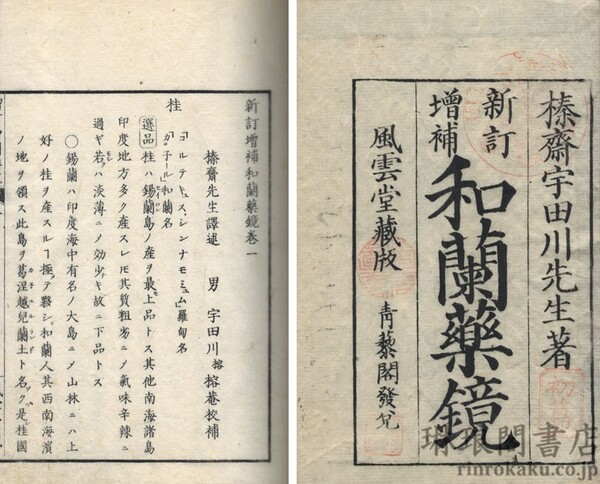 榛齋宇田川先生著
新訂
增補
和蘭藥鏡
風雲堂藏版
青藜閣發兌
新訂增補和蘭藥鏡卷一
榛齋先生譯述 男 宇田川榕 榕菴校補
桂
コルテキス、シンナモミュム 羅甸名
和蘭名
選品 桂ハ錫蘭島ノ產ヲ最上品トス其他南海諸島
印度地方多ク產スレ𪜈其質粗劣ニノ氣味辛辣ニ
過ギ若ハ淡薄ニノ効少キ故ニ下品トス
○錫蘭ハ印度海中有名ノ大島ニノ山林ニハ上
好ノ桂ヲ產スルヿ極テ夥シ和蘭人其西南海濱
ノ地ヲ領ス此島ヲ葛涅越兒蘭土ト名ク是桂國
琳琅閣書店
rinrokaku.co.jp